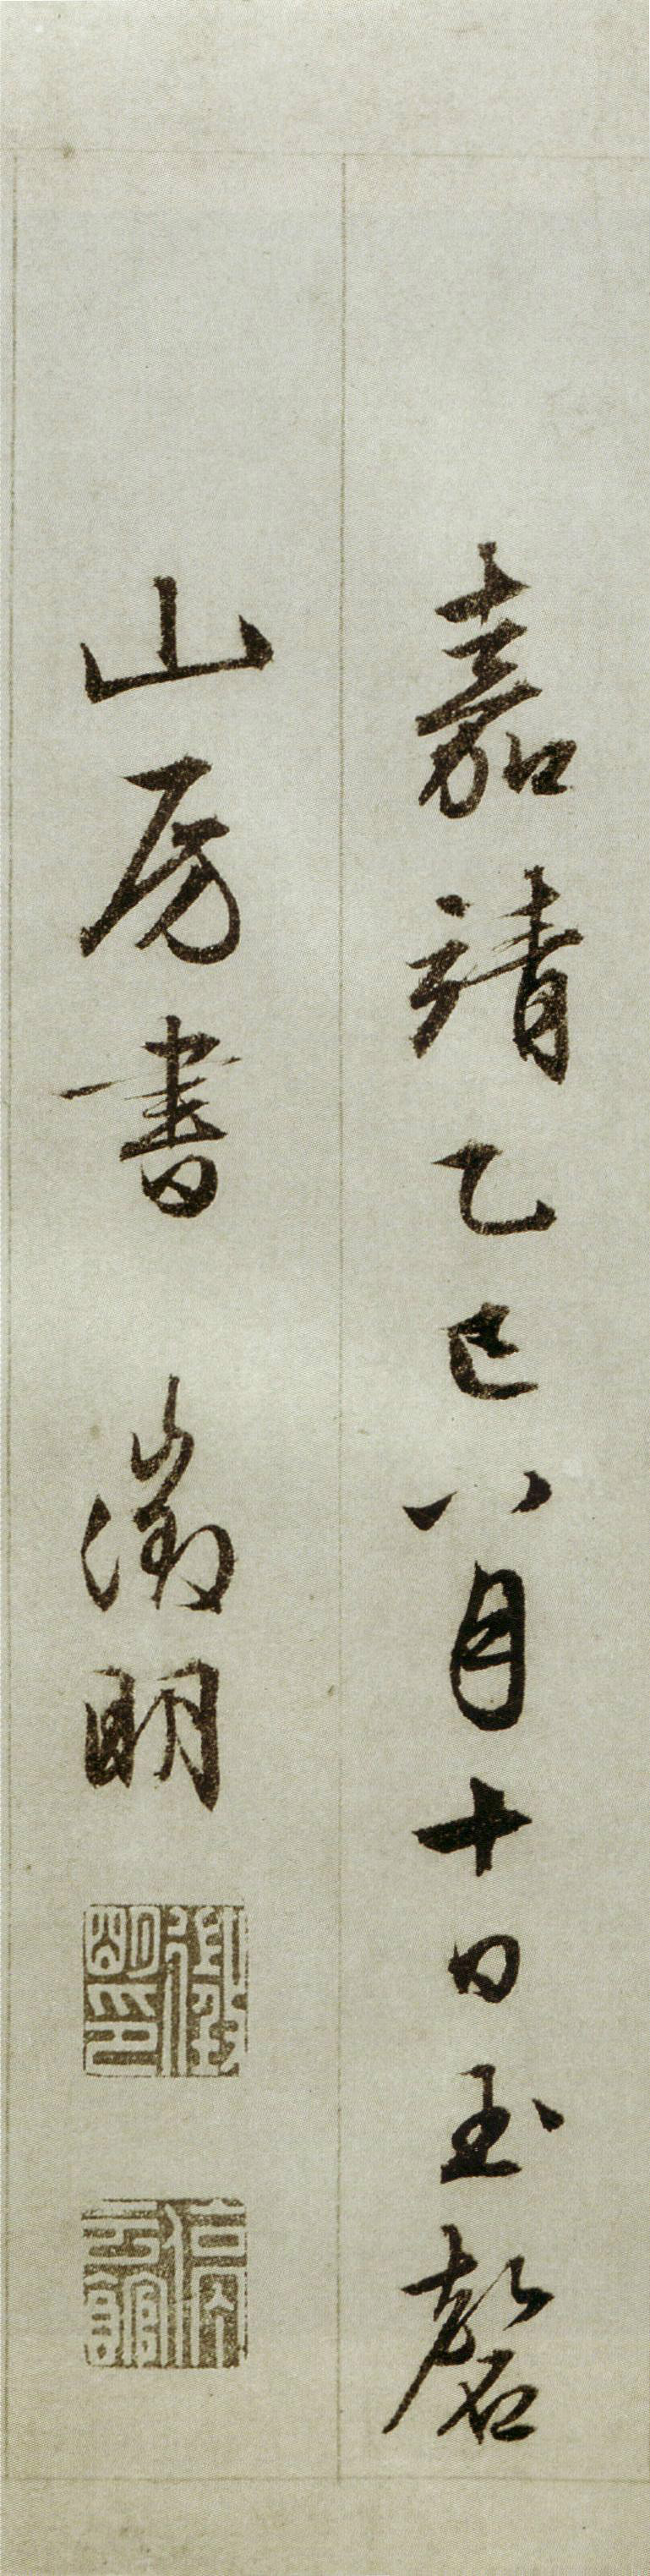 嘉靖乙巳八月十日玉磬
山房書 徵明
徵明印
停雲館